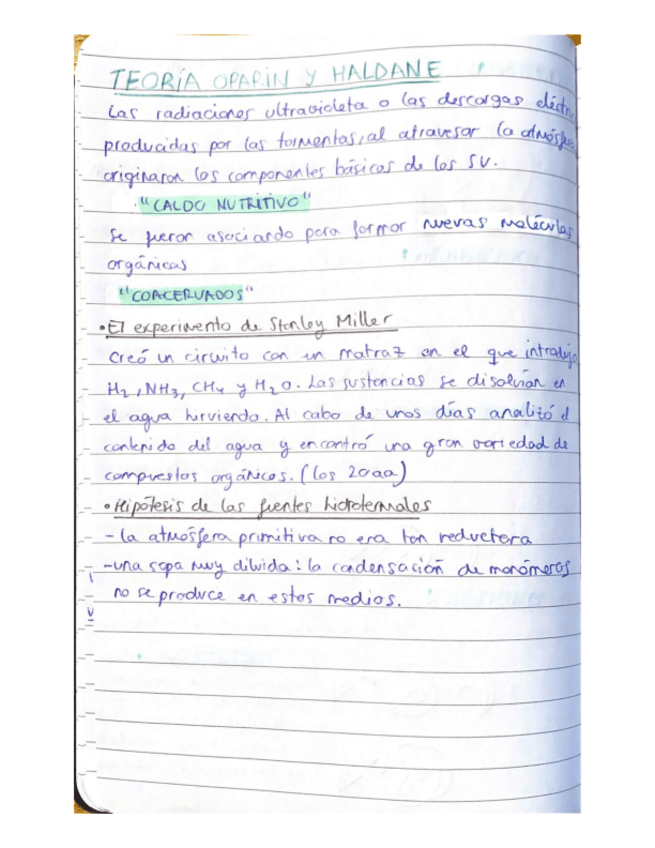 TEORÍA OPARIN Y HALDANE
Las radiaciones ultravioleta o las descargas
producidas por las tormentas, al atravesar la
originaron los componentes básicos de los SV.
"CALDO NUTRITIVO"
Se fueron asociando para formar nuevas moléculas
orgánicas
"COACERVADOS"
•El experimento de Stanley Miller
Creó un circuito con un matraz en el que introdujo
H2, NH3, CH4 y H2O. Las sustancias se disolvían en
el agua hirviendo. Al cabo de unos días analizó el
contenido del agua y encontró una gran variedad de
compuestos orgánicos. (los 20aa)
•Hipótesis de las fuentes hidrotermales
- la atmósfera primitiva no era tan reductora
-una sopa muy diluida: la condensación de monómeros
no se produce en estos medios.